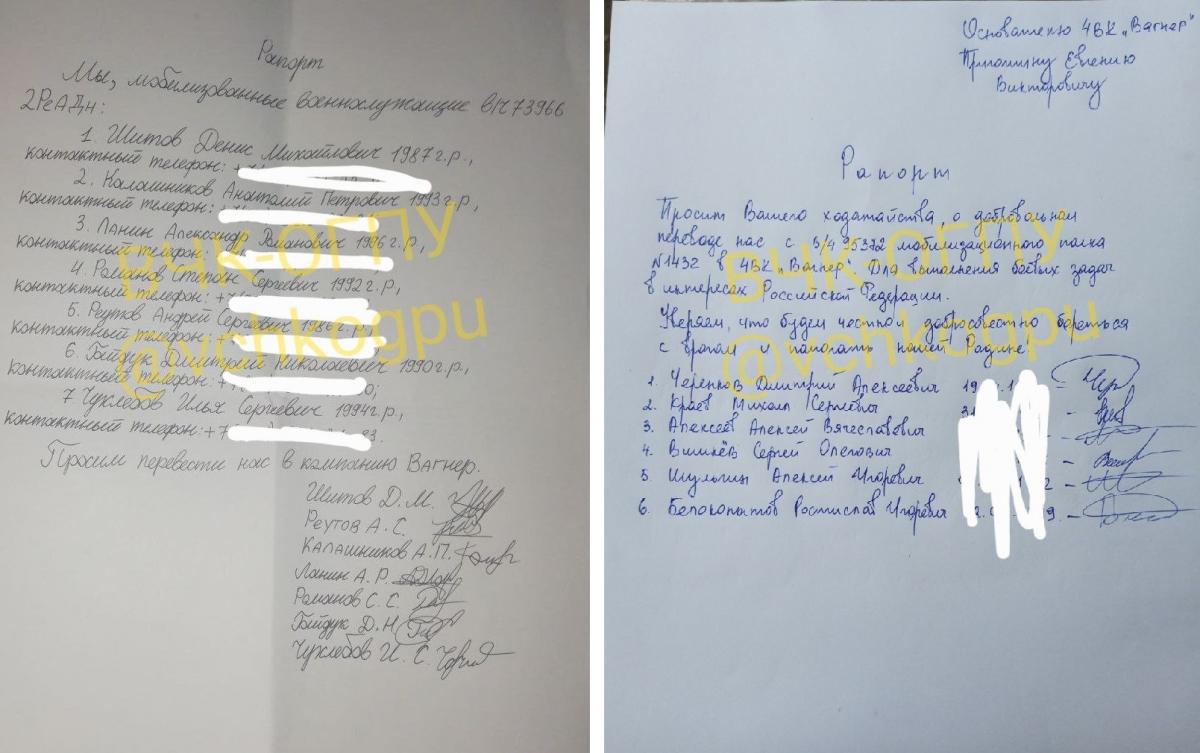 Рапорт
Мы, мобилизованные военнослужащие в/ч 73966
2РеАДн:
1. Шитов Денис Михайлович 1987г.р.,
контактный телефон: +7
2. Калашников Анатолий Петрович 1993г.р.,
контактный телефон: +
3. Ланин Александр Романович 1996г.р.,
контактный телефон:
4. Романов Степан Сергеевич 1992г.р.,
контактный телефон: +7
5. Реутов Андрей Сергеевич 1986г.р.,
контактный телефон: +
6. Гайдук Дмитрий Николаевич 1990г.р.,
контактный телефон: +
7 Чухлебов Илья Сергеевич 1994г.р.,
контактный телефон: +7
Просим перевести нас в компанию Вагнер.
Шитов Д.М.
Реутов А.С.
Калашников А.П.
Ланин А.Р.
Романов С.С.
Гайдук Д.Н.
Чухлебов И.С.
ВЧК-ОГПУ
@vchkogpu
Основателю ЧВК „Вагнер"
Пригожину Евгению
Викторовичу
Рапорт
Просим Вашего ходатайства, о добровольном
переводе нас с в/ч 95372 мобилизационного полка
№1432 в ЧВК „Вагнер". Для выполнения боевых задач
в интересах Российской Федерации.
Уверяем, что будем честно и добросовестно бороться
с врагом и помогать нашей Родине!
1. Черепков Дмитрий Алексеевич 19
2. Краев Михаил Сергеевич 31
3. Алексеев Алексей Вячеславович
4. Вишнёв Сергей Олегович
5. Шульгин Алексей Игоревич
6. Белокопытов Ростислав Игоревич
ВЧК-ОГПУ
@vchkogpu